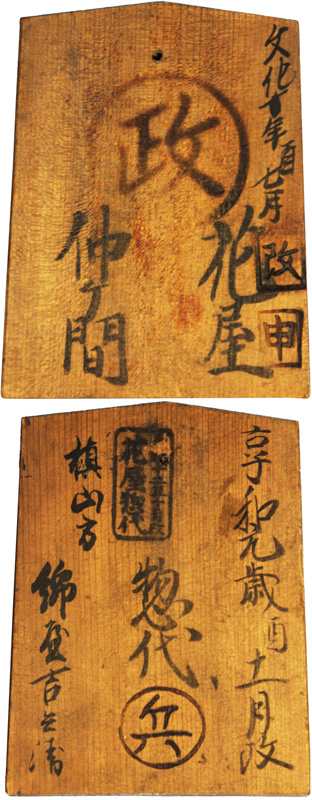 文化十年酉七月
改
申
政
花屋
仲ヶ間
享和元歳酉十一月改
花屋惣代
惣代
兵
槙山方
綿屋吉兵衛